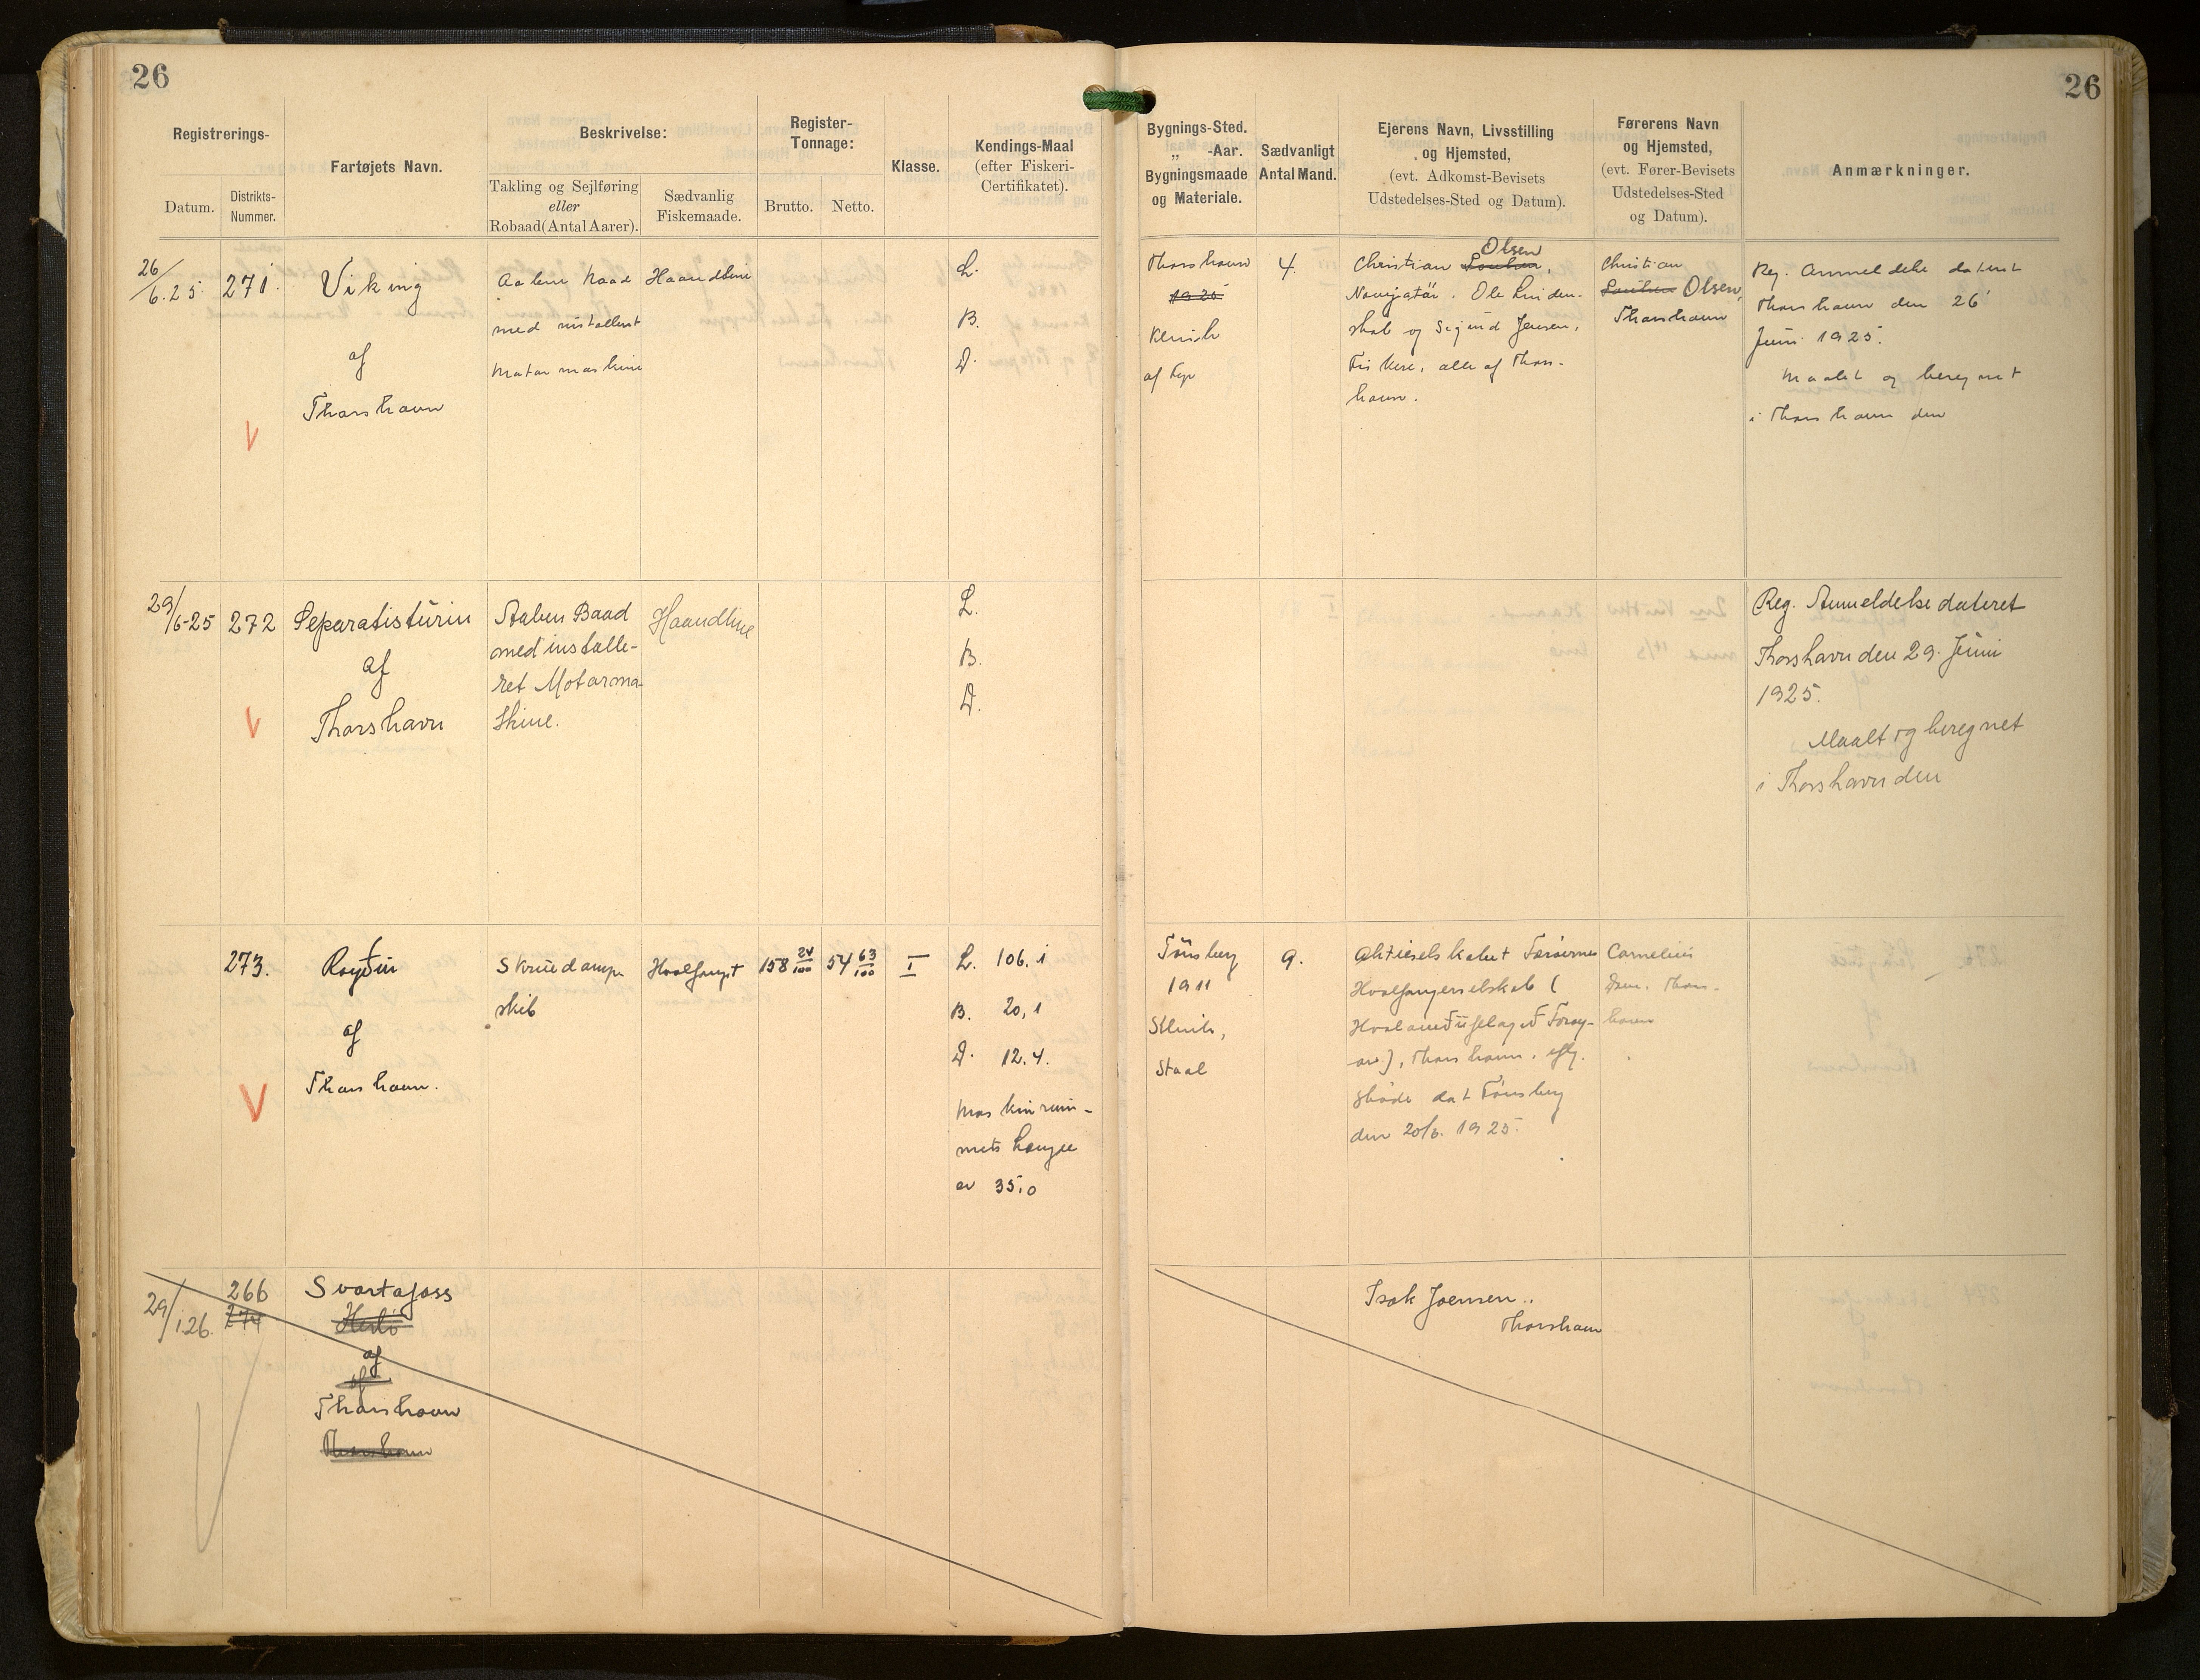 26
26
Registrerings-
Datum.
Distrikts-
Nummer.
Fartøjets Navn.
Beskrivelse:
Takling og Sejlføring
eller
Robaad (Antal Aarer).
Sædvanlig
Fiskemaade.
Register-
Tonnage:
Brutto.
Netto.
Klasse.
Kendings-Maal
(efter Fiskeri-
Certifikatet).
Bygnings-Sted.
„ -Aar.
Bygningsmaade
og Materiale.
Sædvanligt
Antal Mand.
Ejerens Navn, Livsstilling
og Hjemsted,
(evt. Adkomst-Bevisets
Udstedelses-Sted og Datum).
Førerens Navn
og Hjemsted,
(evt. Fører-Bevisets
Udstedelses-Sted
og Datum).
Anmærkninger.
26/6.25
271.
Viking
af
Thorshavn
V
Aaben Baad
med installeret
Motormaskine
Haandline
L.
B.
D.
Thorshavn
1925
Klinik
af Fyr
4.
Olsen
Christian
Navigatør. Ole Linden-
skob og Sigurd Jensen,
Fiskere, alle af Thors-
havn.
Christian
Olsen,
Thorshavn
Reg. Anmeldelse dateret
Thorshavn den 26'
Juni 1925.
Maalt og beregnet
i Thorshavn den
29/6-25
272
Separatistúrin
af
Thorshavn
V
Aaben Baad
med installe-
ret Motorma-
skine.
Haandline
L.
B.
D.
Reg. Anmeldelse dateret
Thorshavn den 29. Juni
1925.
Maalt og beregnet
i Thorshavn den
273.
Royður
af
Thorshavn.
V
Skruedamp-
skib
Hvalfangst
158 24/100
54 63/100
I
L. 106,1
B. 20,1
D. 12.4.
Maskinrum-
mets Længde
er 35,0
Tönsberg
1911
Klink,
Staal
9.
Aktieselskabet Færöernes
Hvalfangerselskab (
Hvalaveiðufelagið Föroy-
ar), Thorshavn, iflg.
Sköde dat Tönsberg
den 20/3. 1925.
Cornelius
Thors-
havn
29/1.26.
266
274
Svartafoss
af
af
Thorshavn
Thorshavn
Isak Joensen..
Thorshavn